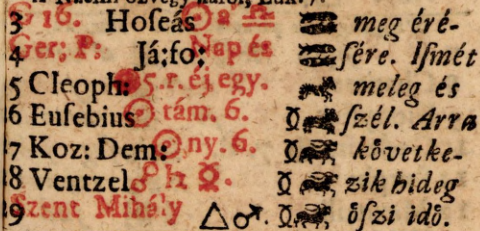 3 G 16. Hoſeás ☉ a ♎ meg éré-
4 Ger; P: Já;fo: Nap és ſére. Iſmét
5 Cleoph: 5. r. éj egy. meleg és
6 Euſebius ☉ tám. 6. ſzél. Arra
7 Koz: Dem: ☉ ny. 6. kôvetke-
8 Ventzel ☍ ♄ ☿. zik hideg
9 Szent Mihály △ ♂. ôſzi idô.